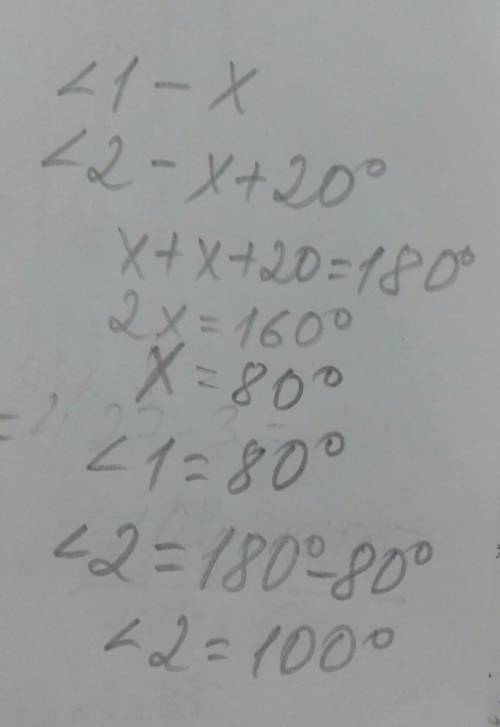 <1 - x
<2 - x+20°
x+x+20=180°
2x=160°
x=80°
<1=80°
<2=180°-80°
<2=100°